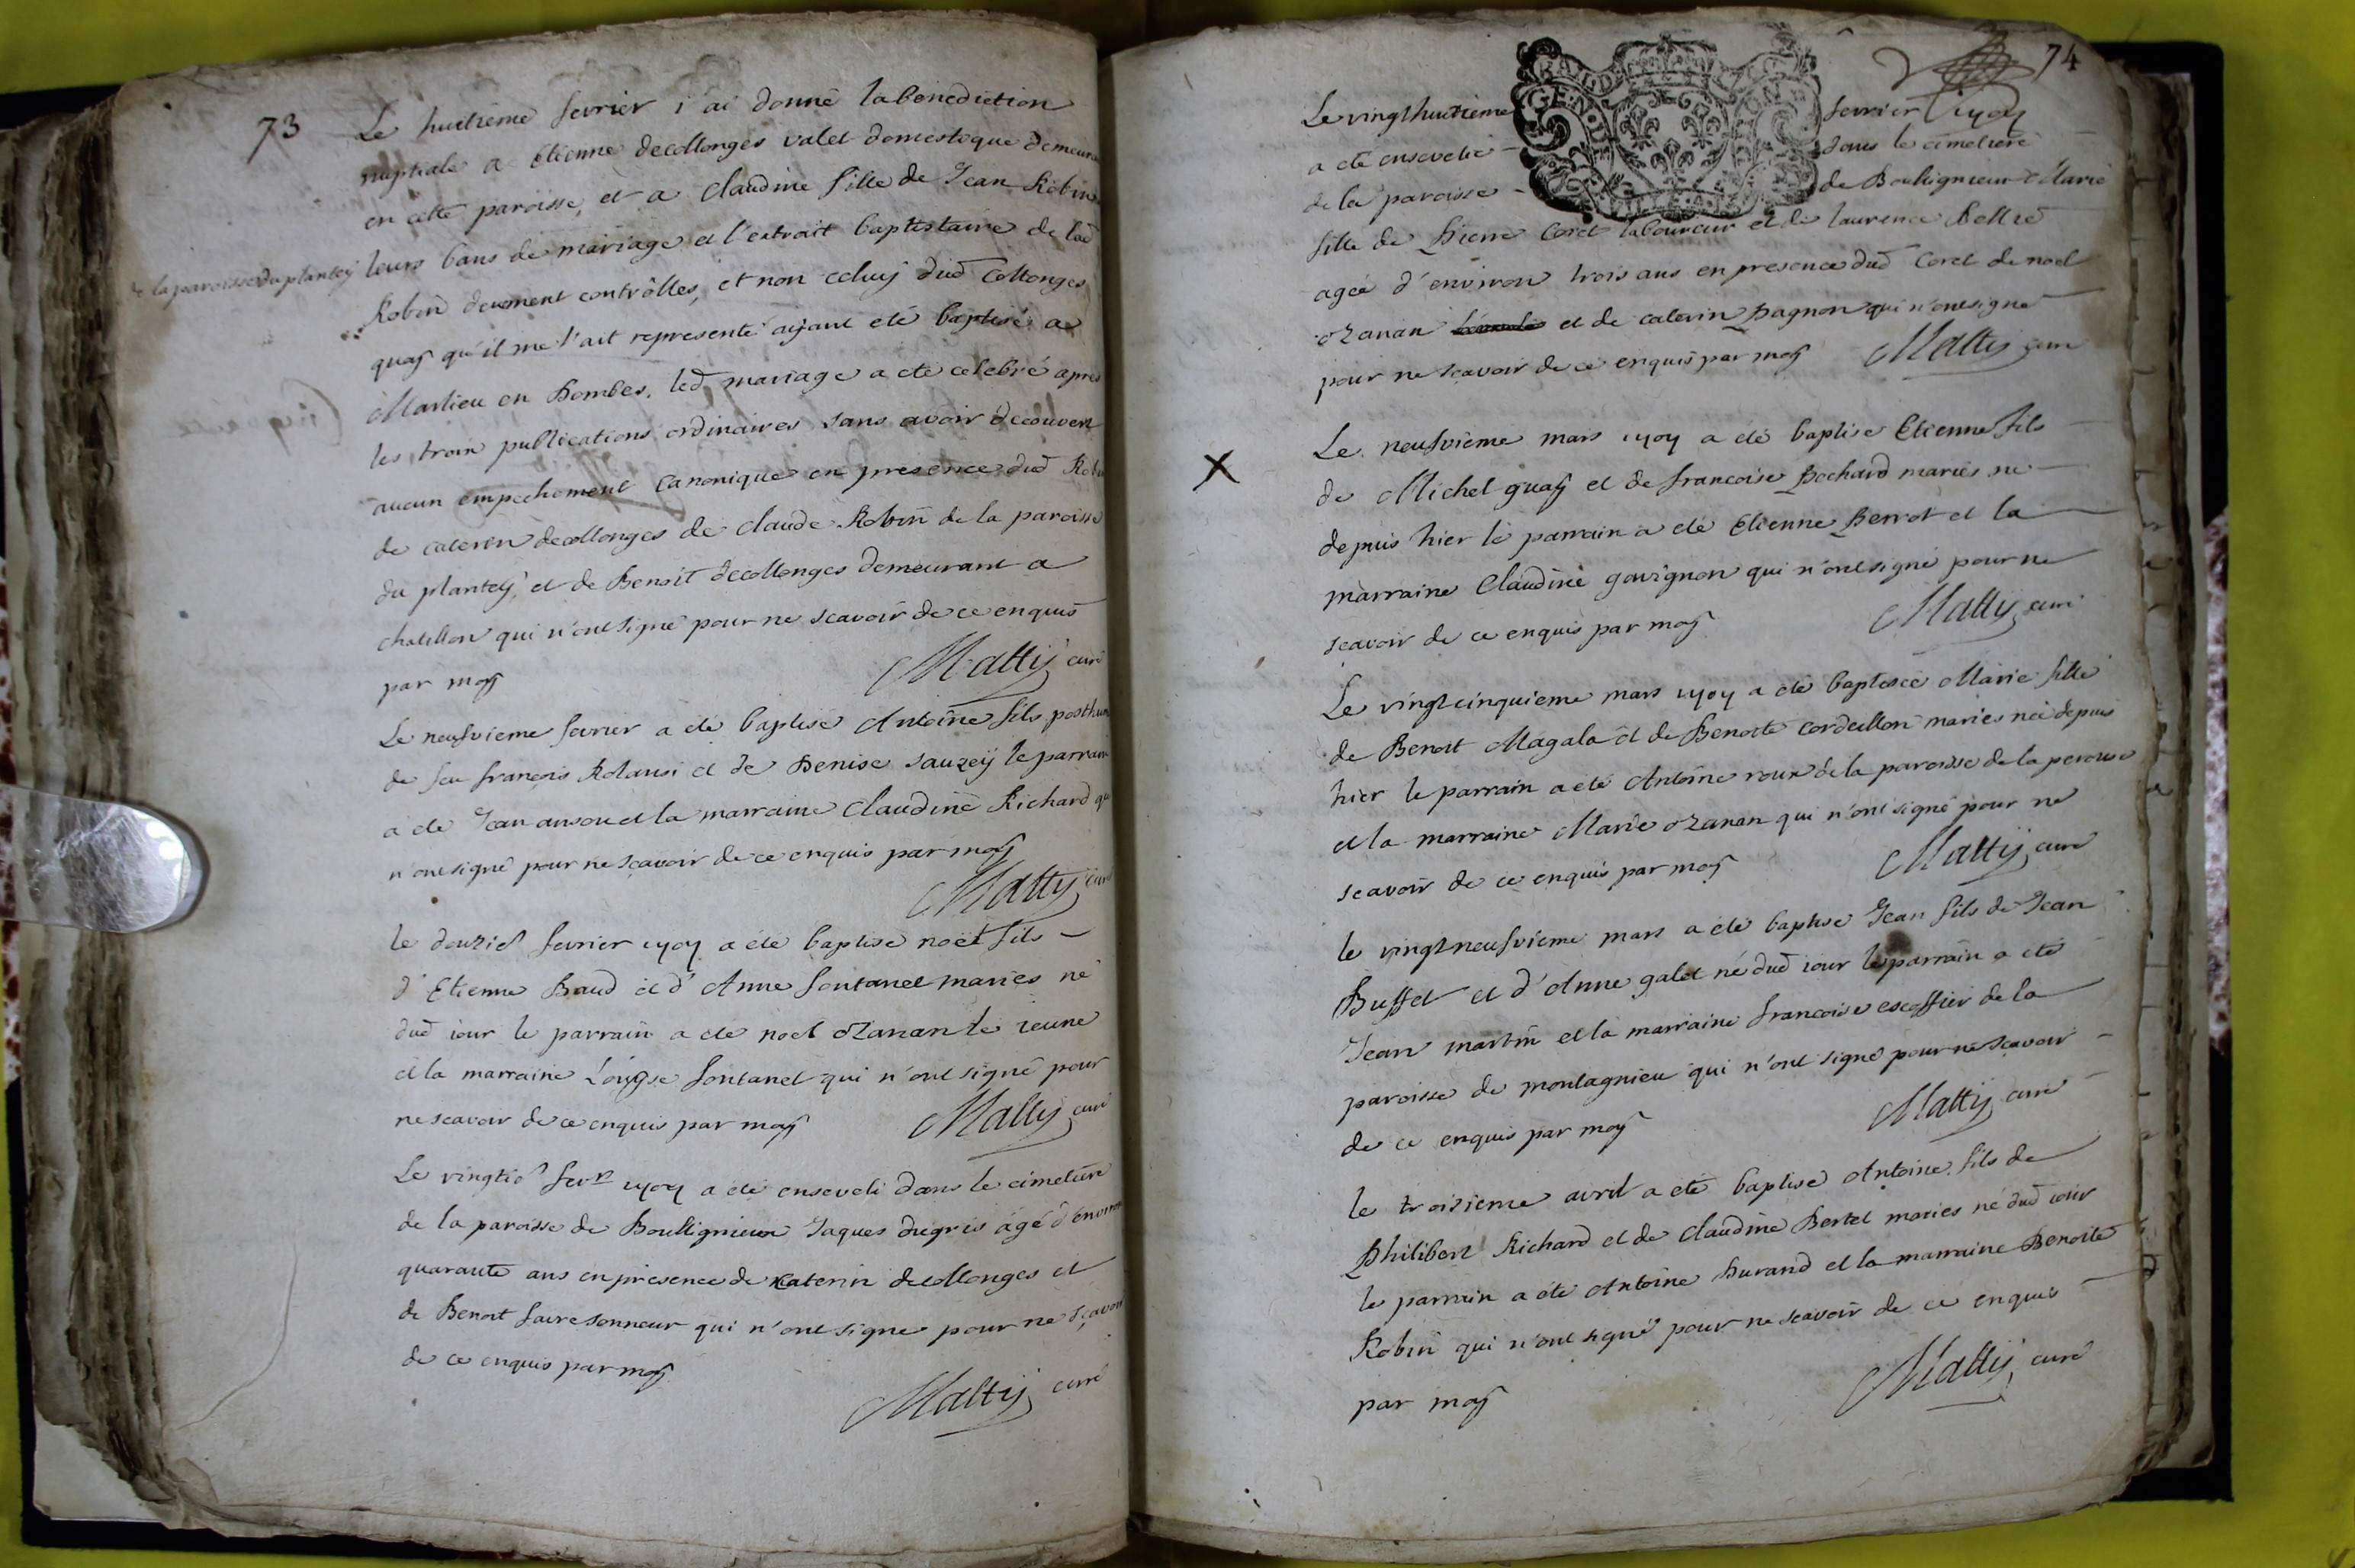 73
Le huitieme fevrier i'ai donné la benediction
nuptiale a Etienne decollonges valet domestique demeurant
en cette paroisse, et a Claudine fille de Jean Robin
de la paroisse du plantey
leurs bans de mariage et l'extrait baptistaire de lad
Robin deuement contrôlles, et non celuy dud Collonges
quoy qu'il me l'ait representé aijant eté baptisé a
Marlieu en Dombes, led mariage a ete celebré apres
les trois publications ordinaires sans avoir decouvert
aucun empechement canonique en presence dud Robin
de caterin decollonges de claude Robin de la paroisse
du plantey, et de Benoit decollonges demeurant a
chatillon qui n'ont signé pour ne scavoir de ce enquis
par moy
Mattij curé
Le neufvieme fevrier a eté baptisé Antoine fils posthume
de feu françois Rolansi et de Denise sauzey le parrain
a eté Jean anson et la marraine Claudine Richard qui
n'ont signé pour ne scavoir de ce enquis par moy
Mattij curé
le douzie fevrier 1707 a eté baptisé noël fils
d'Etienne Baud et d'Anne fontanel mariés né
dud iour le parrain a eté noël ozanan le ieune
et la marraine Loüyse fontanel qui n'ont signé pour
ne scavoir de ce enquis par moy
Mattij curé
Le vingtie fevr 1707 a eté enseveli dans le cimetiere
de la paroisse de Boulligneux Jaques degris âgé d'environ
quarante ans en presence de caterin decollonges et
de Benoit faire sonneur qui n'ont signé pour ne sçavoir
de ce enquis par moy
Mattij curé
74
Le vingthuitieme fevrier 1707
a eté ensevelie dans le cimetiere
de la paroisse de Boulligneux Marie
fille de Pierre Coret laboureur et de laurence Bollie
agée d'environ trois ans en presence dud Coret de noel
ozanan et de caterin Pagnon qui n'ont signé
pour ne scavoir de ce enquis par moy
Mattij curé
X
Le neufvieme mars 1707 a eté baptisé Etienne fils
de Michel guay et de francoise Bochard mariés né
depuis hier le parrain a eté Etienne Berrot et la
marraine Claudine gouvignon qui n'ont signé pour ne
scavoir de ce enquis par moy
Mattij curé
Le vingtcinquieme mars 1707 a eté baptisée Marie fille
de Benoit Magala et de Benoite cordeillon mariés née depuis
hier le parrain a eté Antoine roux de la paroisse de la perouse
et la marraine Marie ozanan qui n'ont signé pour ne
scavoir de ce enquis par moy
Mattij curé
le vingtneufvieme mars a eté baptisé Jean fils de Jean
Buffet et d'Anne galet né dud iour le parrain a eté
Jean martin et la marraine francoise escoffier de la
paroisse de montagnieu qui n'ont signé pour ne scavoir
de ce enquis par moy
Mattij curé
le troisieme avril a eté baptisé Antoine fils de
Philibert Richard et de Claudine Bertet mariés né dud iour
le parrain a eté Antoine Durand et la marraine Benoite
Robin qui n'ont signé pour ne scavoir de ce enquis
par moy
Mattij curé